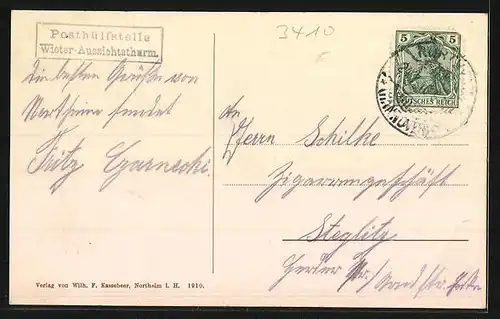 Posthülfstelle
Wieter-Aussichtsthurm.
3410
5 5
DEUTSCHES REICH
Die besten Grüße von
Northeim sendet
Fritz Czarnecki.
An
Herrn Schilke
Zigarrengeschäft
Steglitz
Verlag von Wilh. F. Kassebeer, Northeim i. H. 1910.